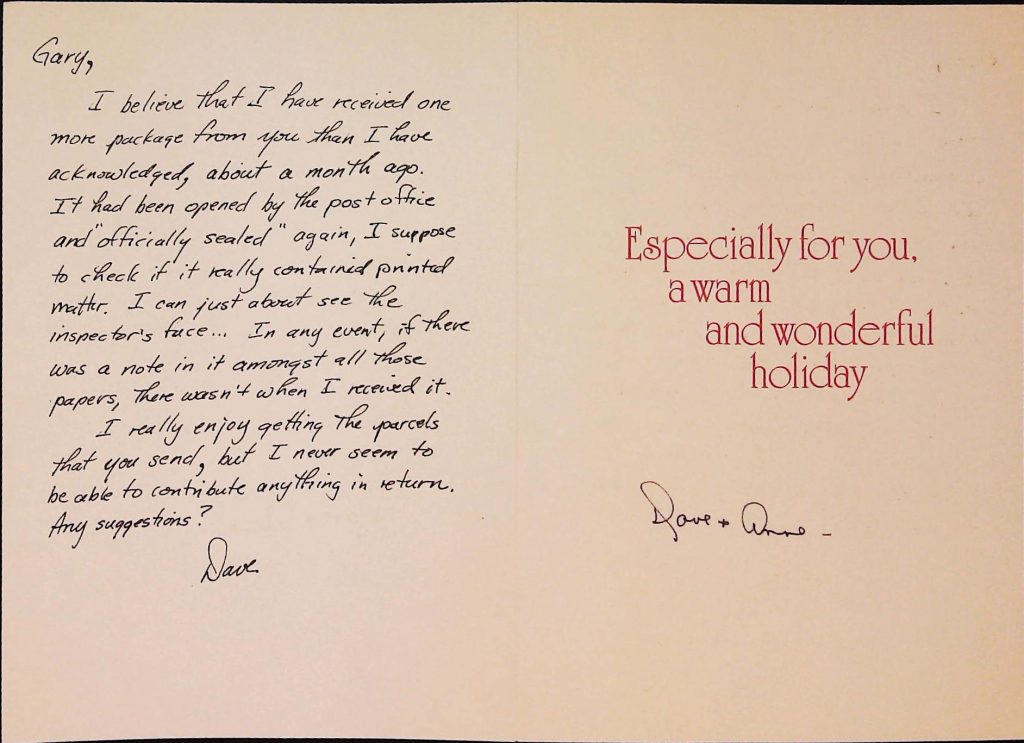 Gary,
I believe that I have received one
more package from you than I have
acknowledged, about a month ago.
It had been opened by the post office
and "officially sealed" again, I suppose
to check if it really contained printed
matter. I can just about see the
inspector's face... In any event, if there
was a note in it amongst all those
papers, there wasn't when I received it.
I really enjoy getting the parcels
that you send, but I never seem to
be able to contribute anything in return.
Any suggestions?
Dave
Especially for you,
a warm
and wonderful
holiday
Dave + Anne -